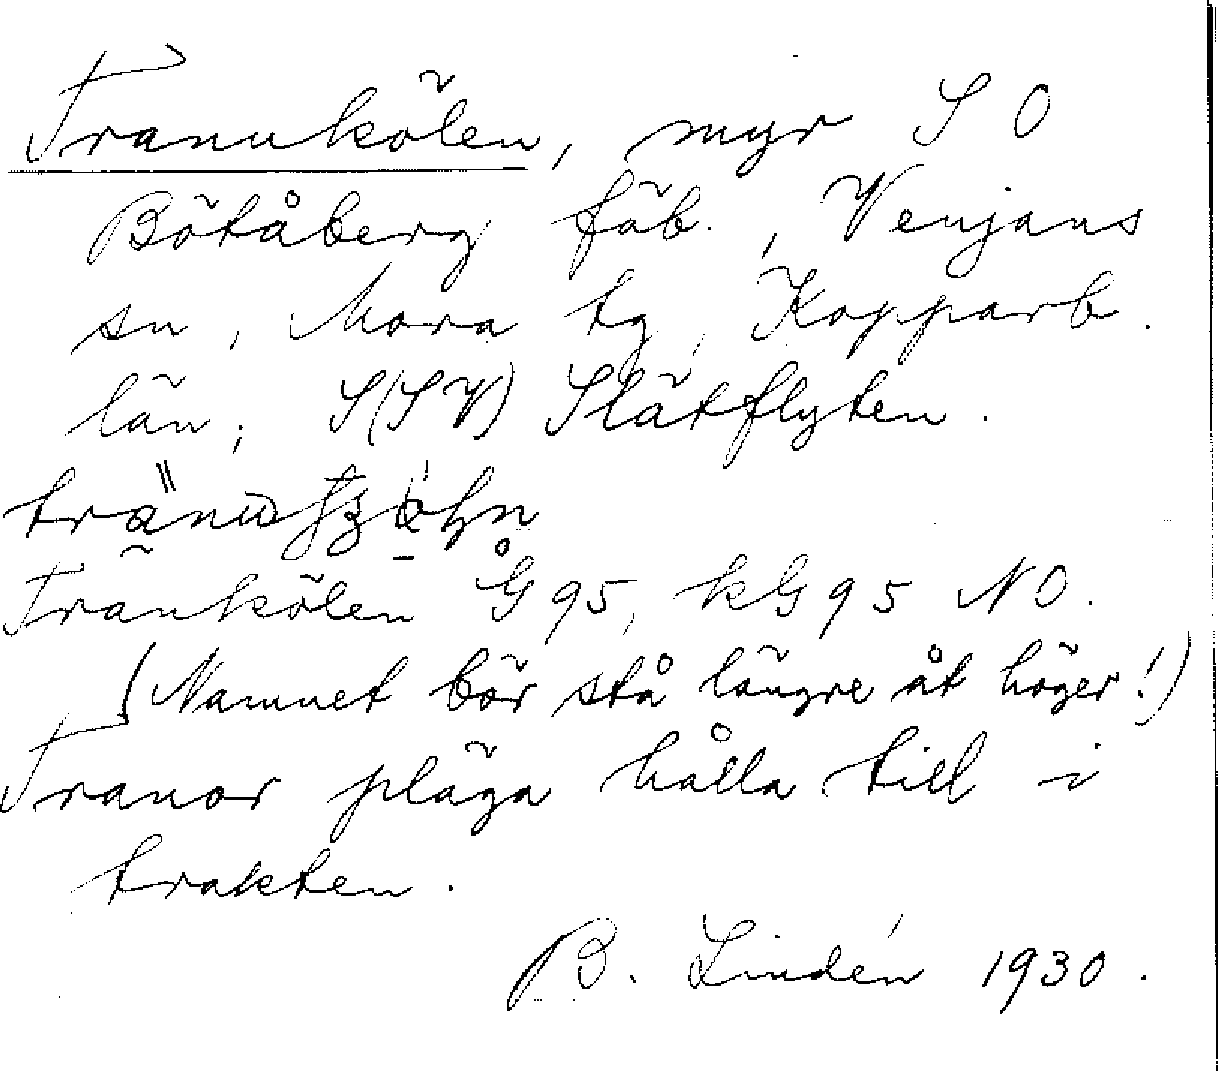 Tranukölen, myr S O
Bötåberg fäb., Venjans
sn, Mora tg, Kopparb.
län; S(SV) Slätflyten.
Trankölen Å 95, kG 95 NO.
(Namnet bör stå längre åt höger!)
Tranor pläga hålla till i
trakten.
B. Lindén 1930.